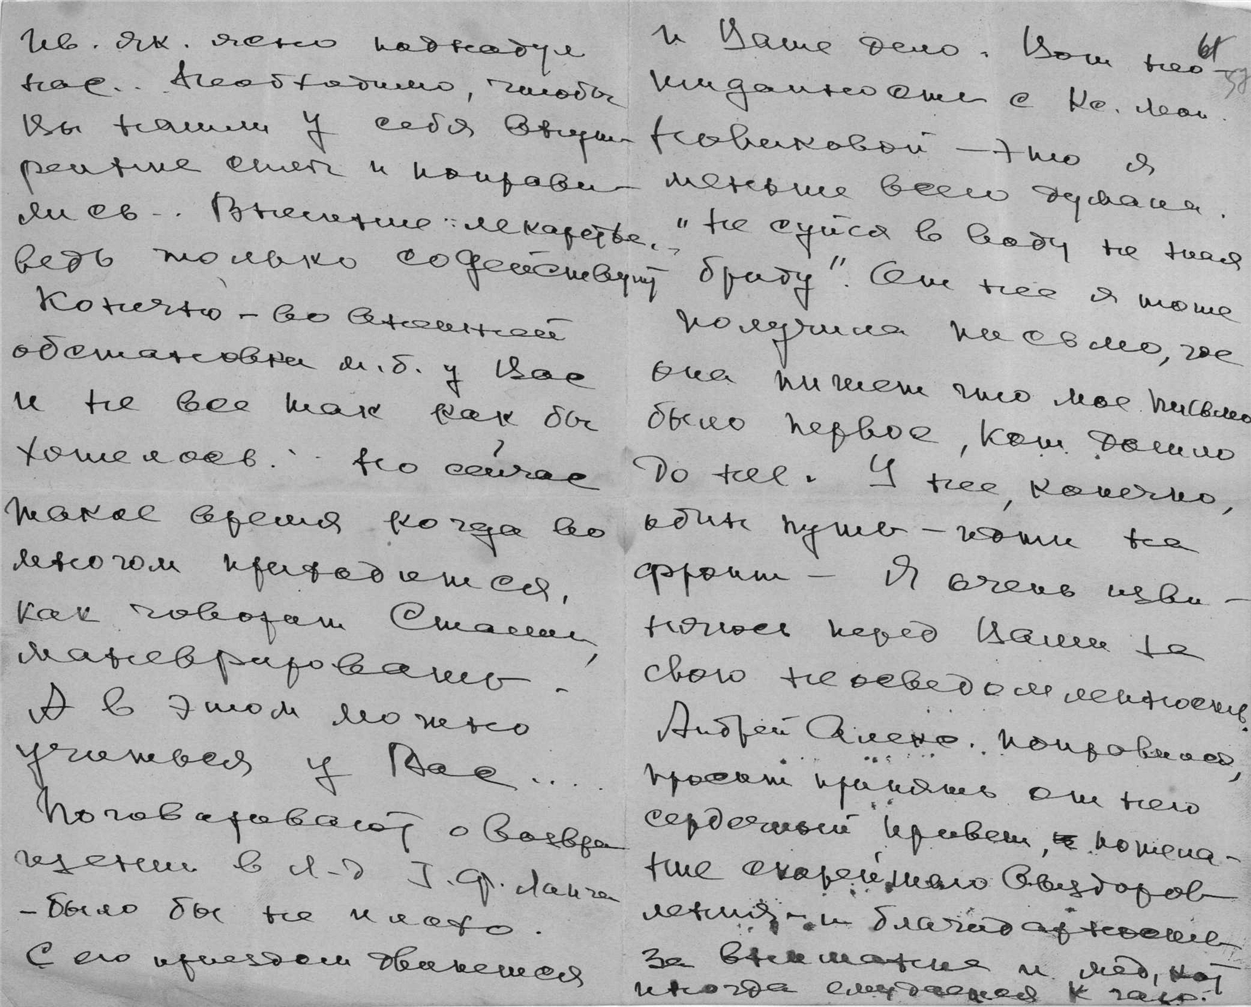 Ив. Як. ясно поднадул
нас.. Необходимо, чтобы
Вы нашли у себя внут-
ренние силы и поправи-
лись.. Внешние лекарства..
ведь только содействуют
Конечно - во внешней
обстановке м.б. у Вас
и не все так как бы
хотелось... Но сейчас
такое время когда во
многом приходится,
как говорит Сталин,
маневрировать.
А в этом можно
учиться у Вас...
Поговаривают о возвра
щении в Л-д Г.Ф. Ланга
- было бы не плохо.
С его приездом двинется
и Ваше дело. Вот нео-
61
жиданности с Кс. Мак.
Новиковой - это я
меньше всего думала.
"Не суйся в воду не зная
броду". От нее я тоже
получила письмо, где
она пишет что мое письмо
было первое, кот. дошло
до нее. У нее, конечно,
один путь - идти на
фронт - Я очень изви-
няюсь перед Вами за
свою неосведомленность.
Андрей Алекс.. поправился,
просит принять от него
сердечный привет, пожела-
ние скорейшего выздоров
ления и благодарность
за внимание и мед, кот
иногда съедается к чаю.